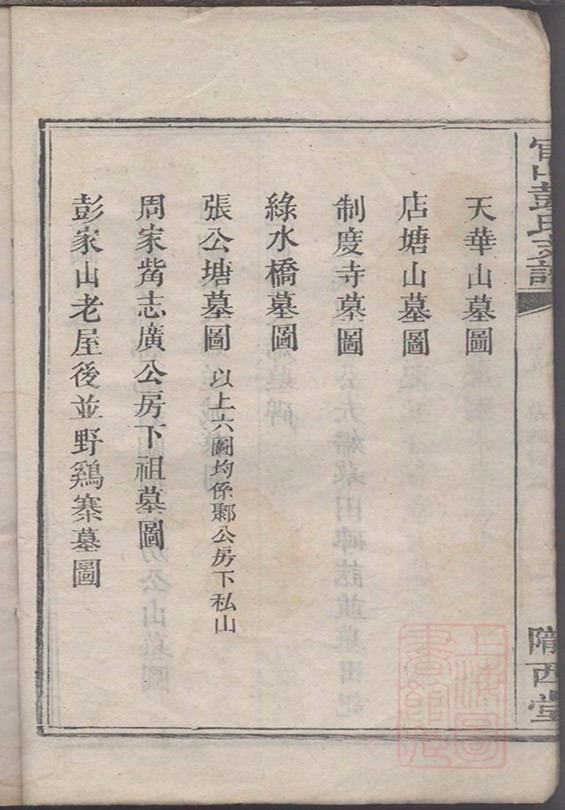 彭氏支譜
隋西堂
天華山墓圖
店塘山墓圖
制度寺墓圖
綠水橋墓圖
張公塘墓圖 以上六圖均係鄒公房下私山
周家觜志廣公房下祖墓圖
彭家山老屋後並野鷄寨墓圖
上海圖書館藏